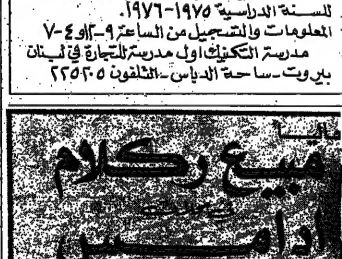 للسنة الدراسية ١٩٧٥-١٩٧٦.
المعلومات والتسجيل من الساعة ٩-١٢ و٤-٧
مدرسة التكنيك اول مدرسة للتجارة في لبنان
بيروت - ساحة الدباس - التلفون ٢٢٥٢٠٥
حاليا
مبيع ركلام